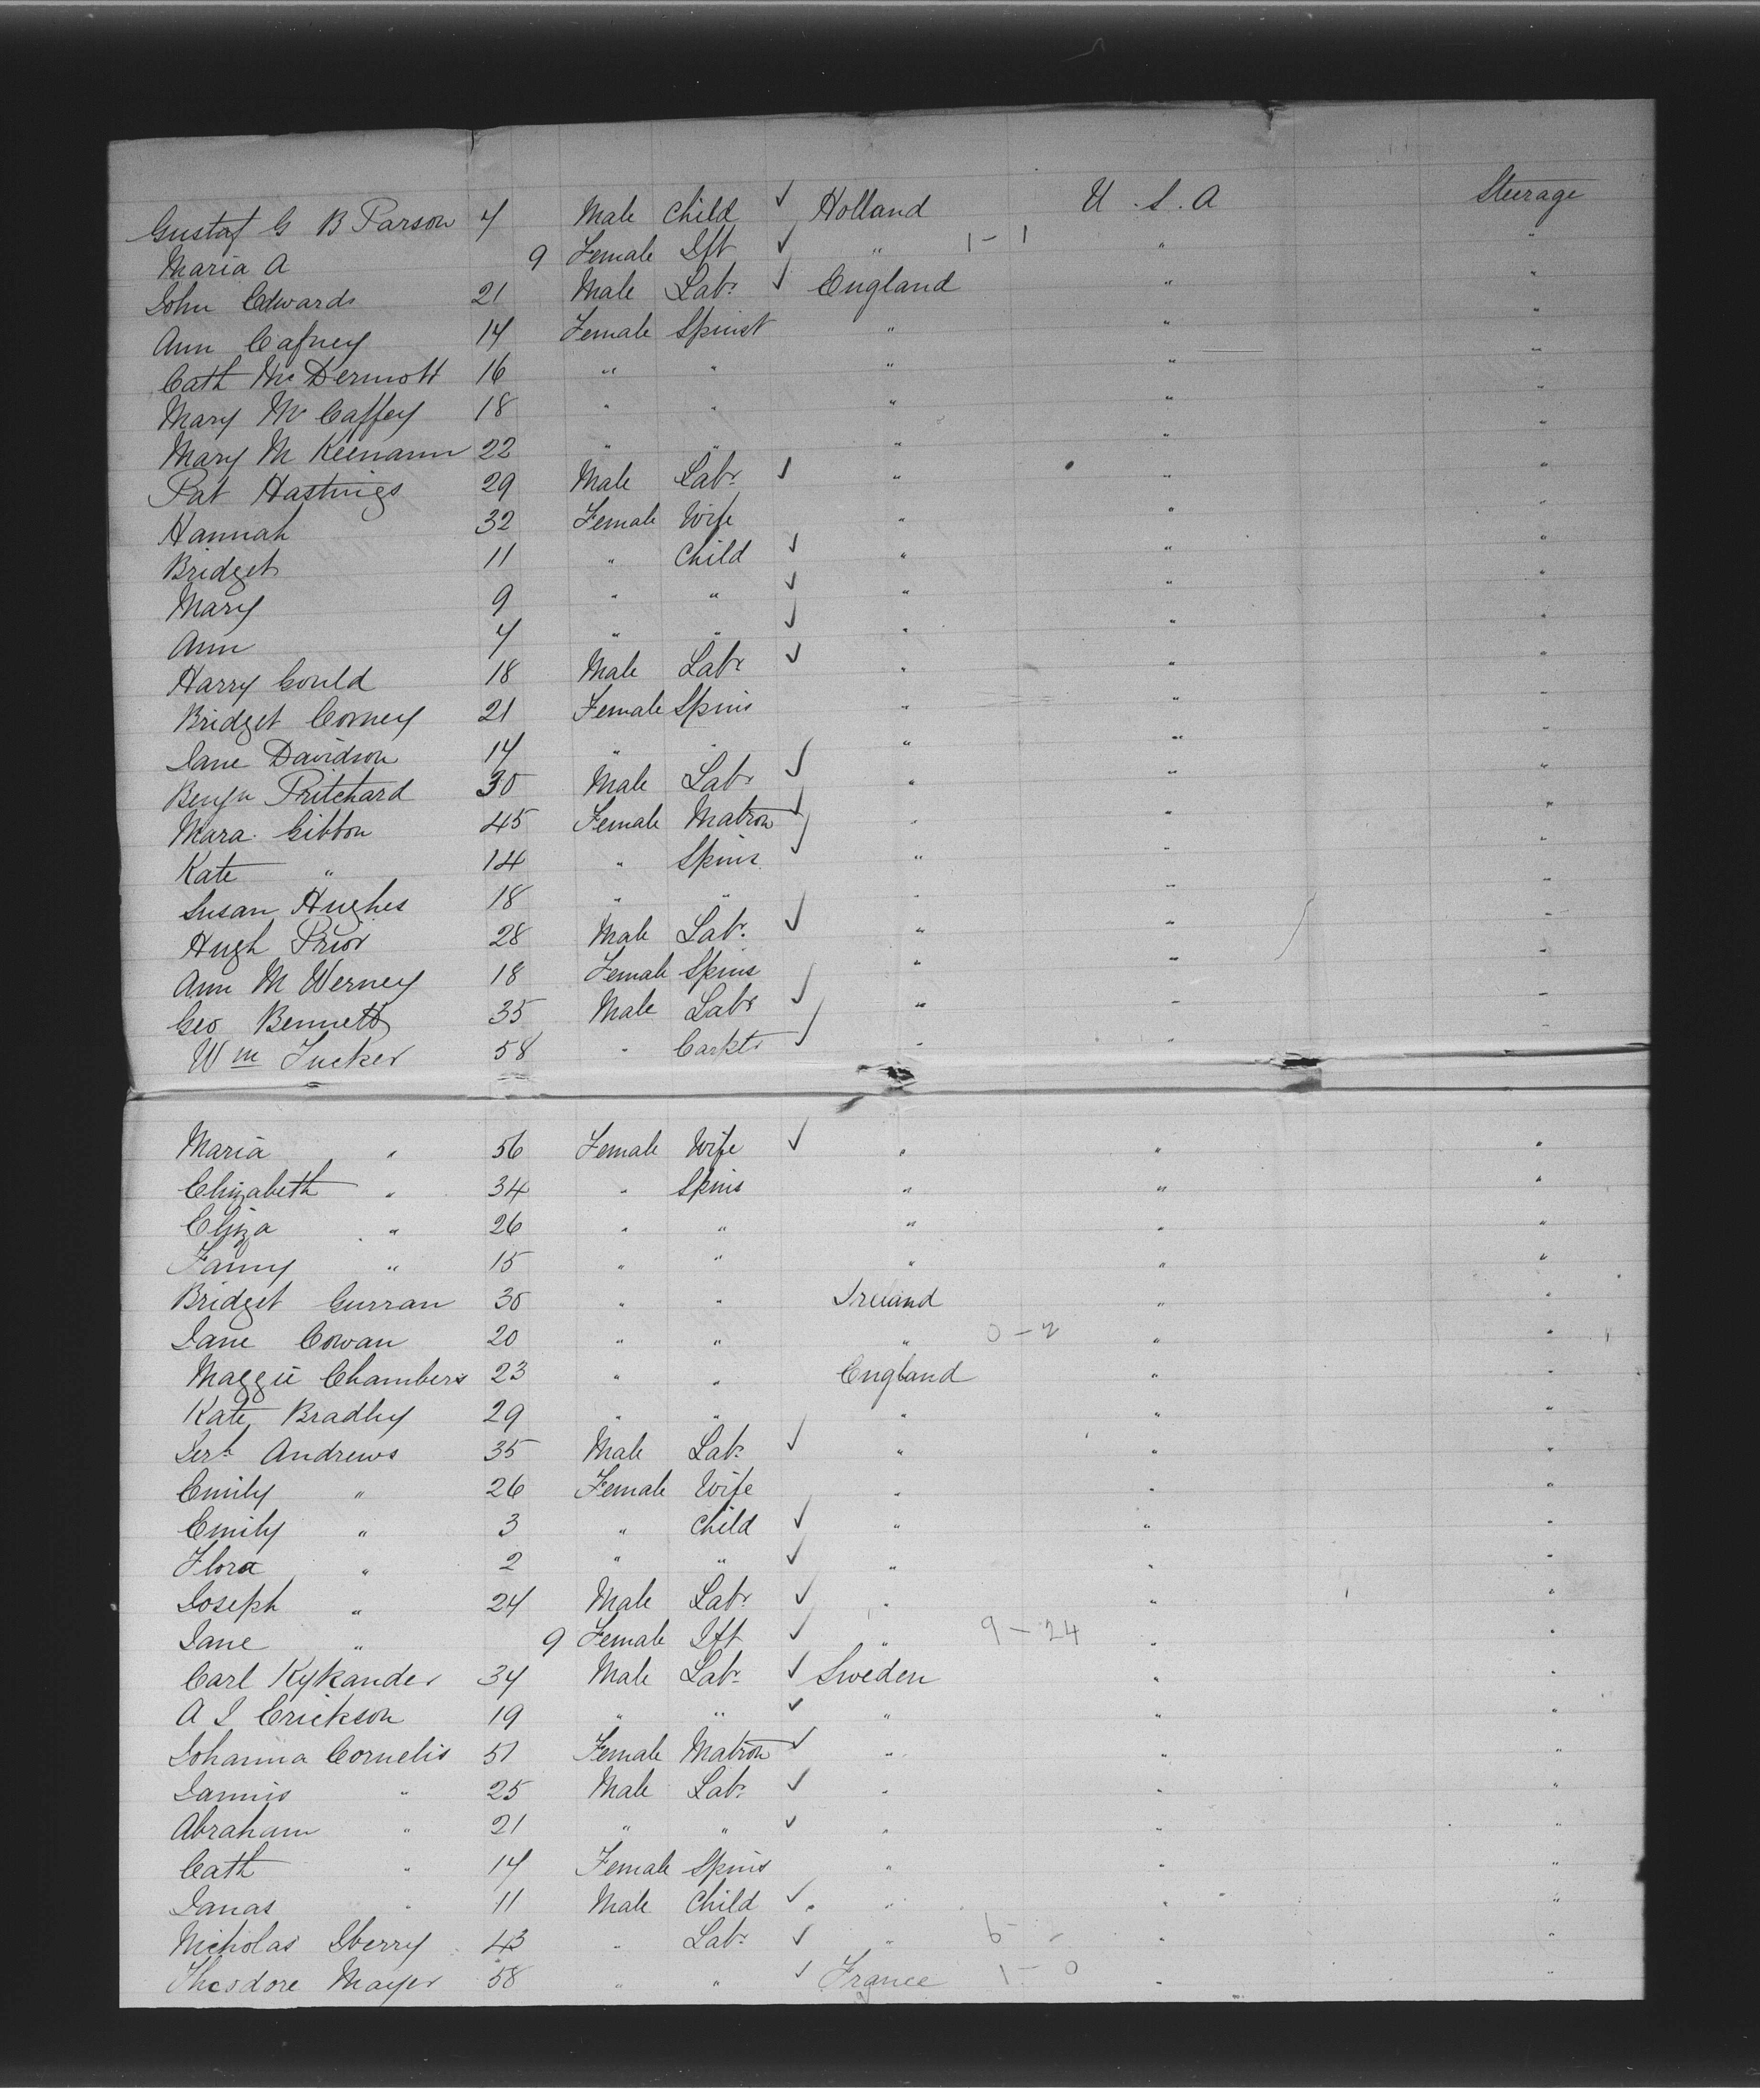 Gustaf G B Parson 4 Male Child ✓ Holland U.S.A Steerage
Maria A 9 Female Ift ✓ " 1-1 " "
John Edwards 21 Male Labr ✓ England " "
Ann Cafney 14 Female Spinst " " "
Cath McDermott 16 " " " " "
Mary McCaffey 18 " " " " "
Mary M Keenann 22 " " " " "
Pat Hastings 29 Male Labr ✓ " " "
Hannah 32 Female Wife " " "
Bridget 11 " Child ✓ " " "
Mary 9 " " ✓ " " "
Ann 4 " " ✓ " " "
Harry Gould 18 Male Labr ✓ " " "
Bridget Corney 21 Female Spins " " "
Jane Davidson 14 " " " " "
Benjn Pritchard 30 Male Labr ✓ " " "
Mara Gibbon 45 Female Matron ✓ " " "
Kate " 14 " Spins ✓ " " "
Susan Hughes 18 " " " " "
Hugh Prior 28 Male Labr ✓ " " "
Ann M Werney 18 Female Spins " " "
Geo Bennett 35 Male Labr ✓ " " "
Wm Tucker 58 " ✓ " " "
Maria " 56 Female Wife ✓ " " "
Elizabeth " 34 " Spins " " "
Eliza " 26 " " " " "
Fanny " 15 " " " " "
Bridget Gurran 30 " " Ireland " "
Jane Cowan 20 " " " 0-2 " "
Maggie Chambers 23 " " England " "
Kate Bradley 29 " " " " "
Andrews 35 Male Labr ✓ " " "
Emily " 26 Female Wife " " "
Emily " 3 " Child ✓ " " "
Flora " 2 " " ✓ " " "
Joseph " 24 Male Labr ✓ " " "
Jane " 9 Female Ift ✓ " 9-24 " "
Carl Kykander 34 Male Labr ✓ Sweden " "
A J Erickson 19 " " ✓ " " "
Johanna Cornelis 51 Female Matron ✓ " " "
Jannis " 25 Male Labr ✓ " " "
Abraham " 21 " " ✓ " " "
Cath " 14 Female Spins " " "
Janas " 11 Male Child ✓ " " "
Nicholas 43 " Labr ✓ " 6- " "
Theodore Mayer 58 " " ✓ France 1-0 " "